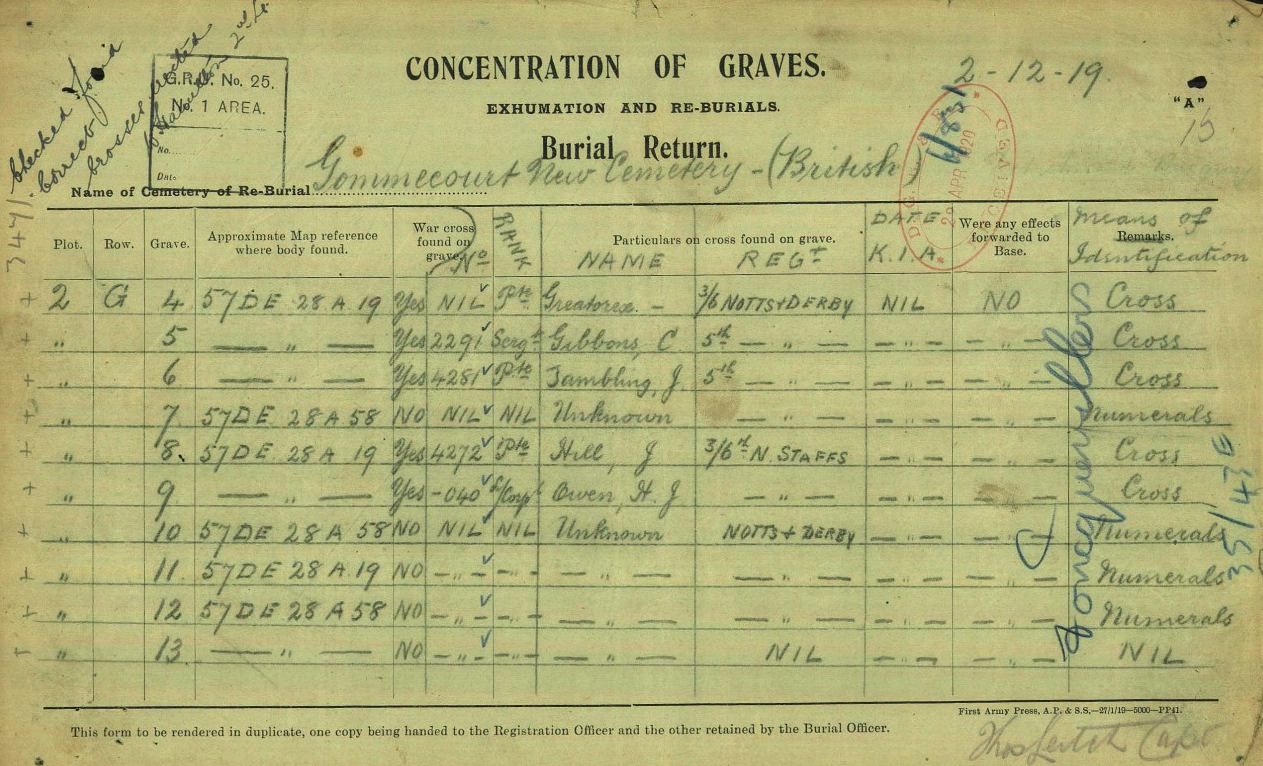 checked found
correct
crosses erected
2nd Lt
G.R.U. No. 25.
No. 1 AREA.
No.
Date
CONCENTRATION OF GRAVES.
2-12-19.
EXHUMATION AND RE-BURIALS.
"A"
15
Burial Return.
Name of Cemetery of Re-Burial Gommecourt New Cemetery - (British)
29 APR 1920
RECEIVED
3471
Plot. Row. Grave. Approximate Map reference where body found. War cross found on grave. No RANK Particulars on cross found on grave. NAME REGT DATE K.I.A. Were any effects forwarded to Base. Means of Remarks. Identification
+ 2 G 4 57DE 28 A 19 Yes NIL Pte Greatorex. - 3/6 NOTTS + DERBY NIL NO Cross
+ " 5 — " — Yes 2291 Sergt Gibbons, C 5th — " — — " — — " — Cross
+ " 6 — " — Yes 4281 Pte Tambling, J 5th — " — — " — — " — Cross
+ " 7 57DE 28 A 58 NO NIL NIL Unknown — " — — " — — " — Numerals
+ " 8. 57DE 28 A 19 Yes 4272 Pte Hill, J 3/6th N. STAFFS — " — — " — Cross
+ " 9 — " — Yes -040 L/Corpl Owen, H. J — " — — " — — " — Cross
+ " 10 57DE 28 A 58 NO NIL NIL Unknown NOTTS + DERBY — " — — " — Numerals
+ " 11 57DE 28 A 19 NO - " - - " - — " — — " — — " — — " — Numerals
+ " 12 57DE 28 A 58 NO - " - - " - — " — — " — — " — — " — Numerals
+ " 13 — " — NO - " - - " - — " — NIL — " — — " — NIL
Foncquevillers
35/43 E
First Army Press, A.P. & S.S.—27/1/19—5000—PP41.
This form to be rendered in duplicate, one copy being handed to the Registration Officer and the other retained by the Burial Officer.
Thos Leitch Capt